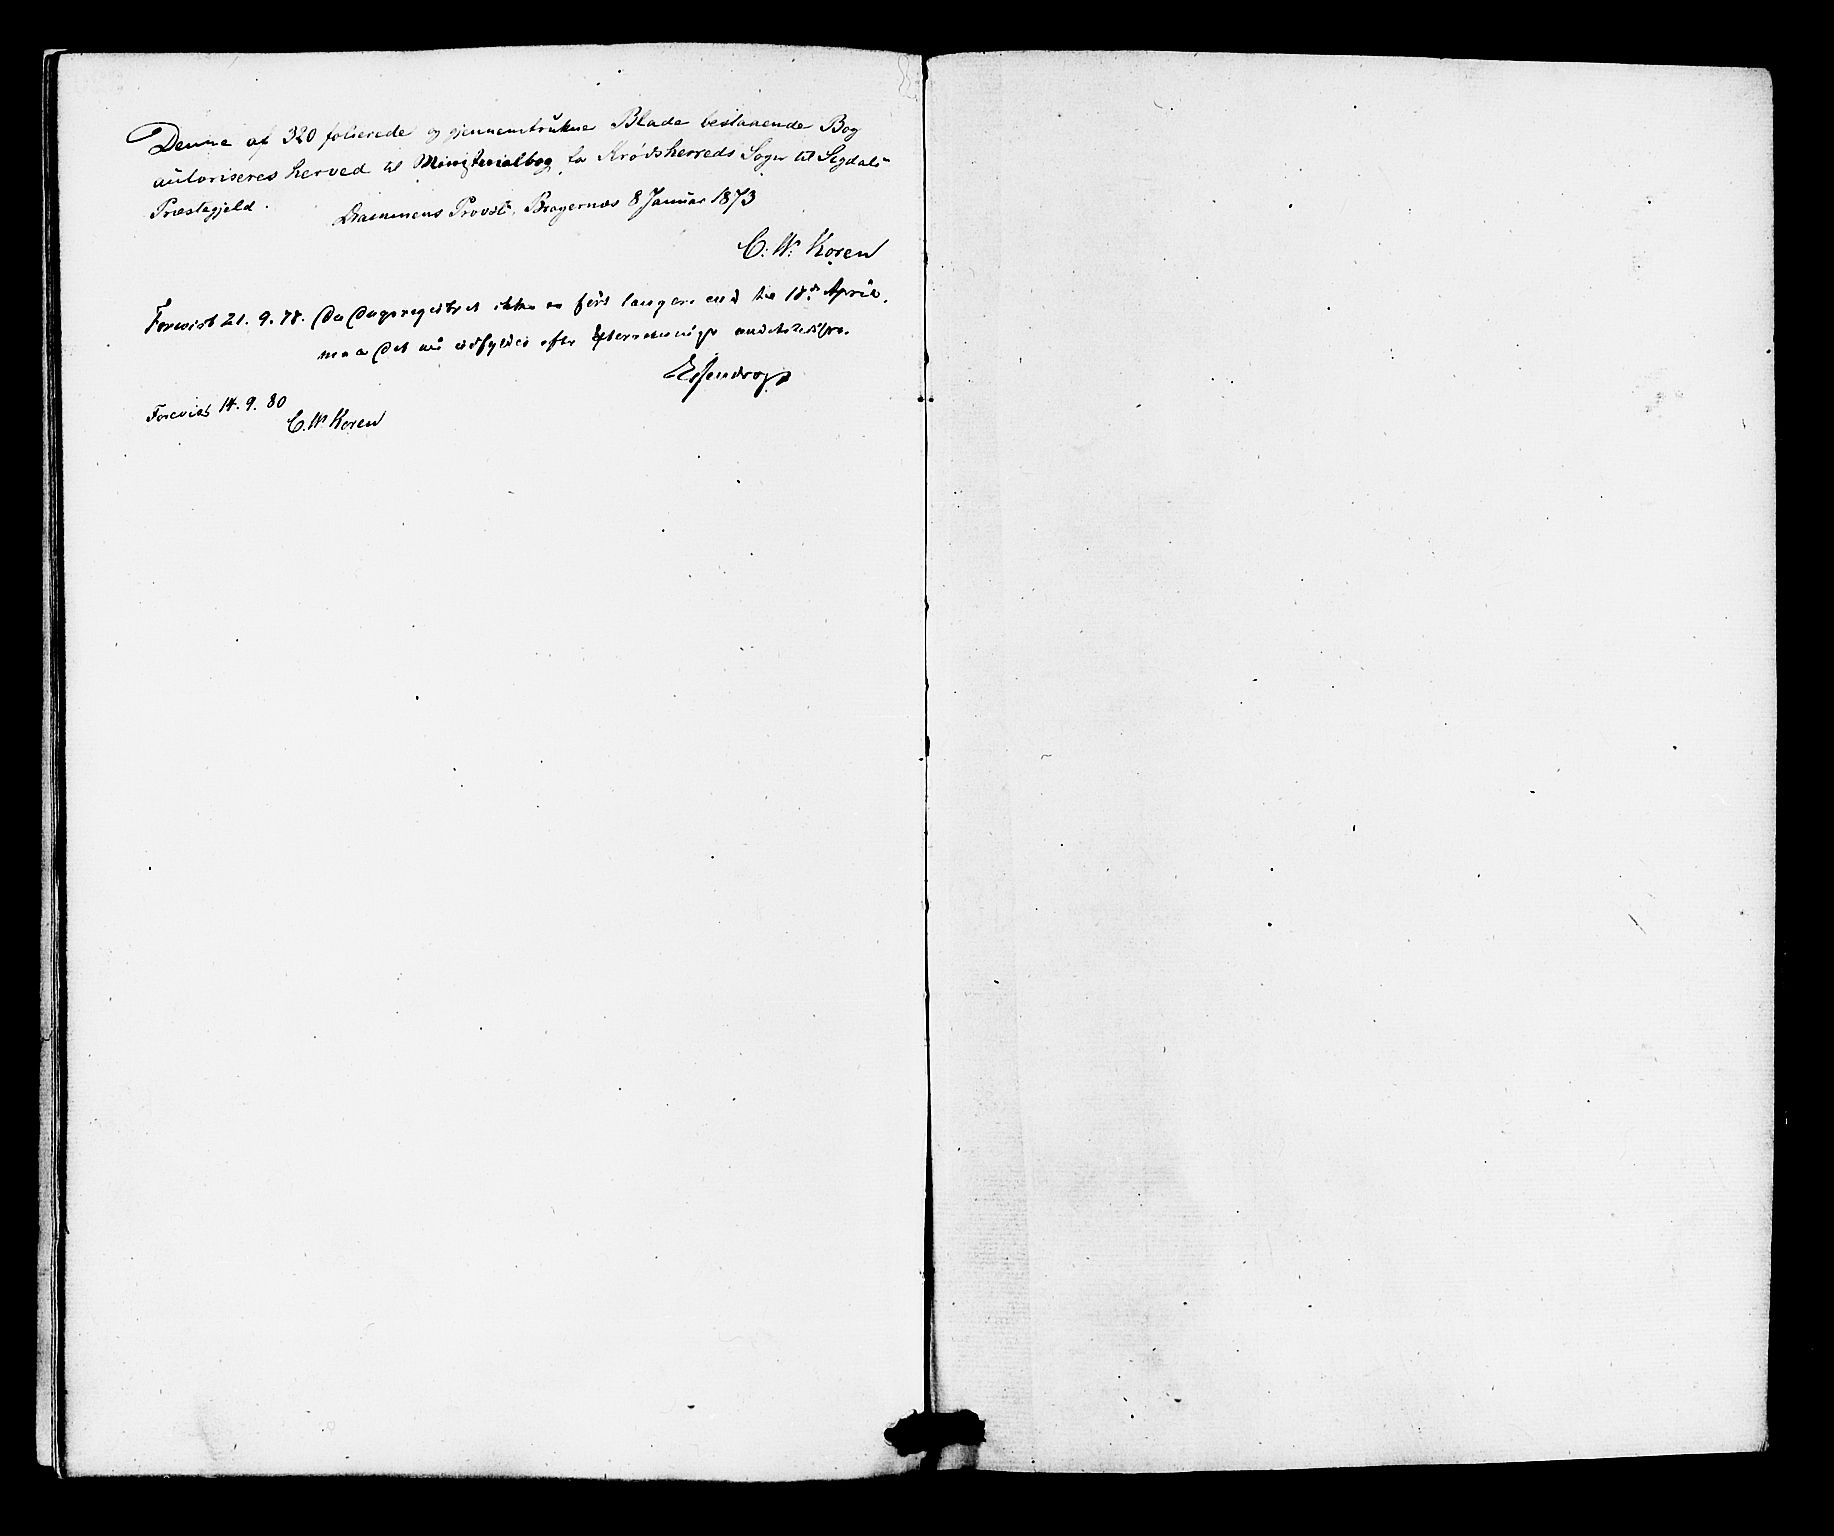 Denne af 320 folierede og gjennemtrukne Blade bestaaende Bog
autoriseres herved til Ministerialbog for Krødsherreds Sogn til Sigdals
Præstegjeld.
Drammens Provsti, Bragernæs 8 Januar 1873
C. W. Koren
Forevist 21. 9. 78. Da Dagsregistret ikke er ført længere end til 18de April,
maa det nu udfyldes efter
Essendrop
Forevist 14. 9. 80
C. W. Koren